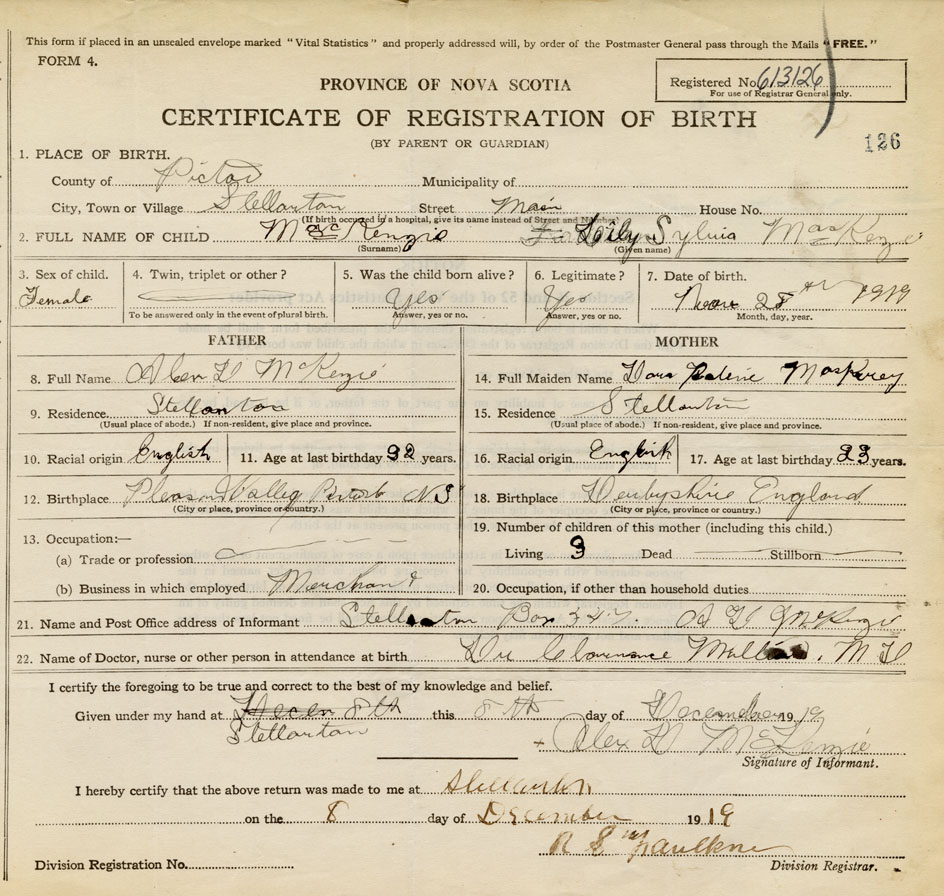 This form if placed in an unsealed envelope marked "Vital Statistics" and properly addressed will, by order of the Postmaster General pass through the Mails "FREE."
FORM 4.
PROVINCE OF NOVA SCOTIA
Registered No. 613126
For use of Registrar General only.
CERTIFICATE OF REGISTRATION OF BIRTH
(BY PARENT OR GUARDIAN)
126
1. PLACE OF BIRTH.
County of Pictou Municipality of
City, Town or Village Stellarton Street Main House No.
(If birth occurred in a hospital, give its name instead of Street and Number)
2. FULL NAME OF CHILD MacKenzie Sylvia MacKenzie
(Surname) (Given name)
3. Sex of child. 4. Twin, triplet or other? 5. Was the child born alive? 6. Legitimate? 7. Date of birth.
Female Yes Yes 28th 1919
To be answered only in the event of plural birth. Answer, yes or no. Answer, yes or no. Month, day, year.
FATHER MOTHER
8. Full Name McKenzie
14. Full Maiden Name
9. Residence Stellarton
(Usual place of abode.) If non-resident, give place and province.
15. Residence Stellarton
(Usual place of abode.) If non-resident, give place and province.
10. Racial origin English 11. Age at last birthday 32 years.
16. Racial origin English 17. Age at last birthday 23 years.
12. Birthplace Valley NS
(City or place, province or country.)
18. Birthplace Derbyshire England
(City or place, province or country.)
13. Occupation:—
(a) Trade or profession
(b) Business in which employed Merchant
19. Number of children of this mother (including this child.)
Living 3 Dead Stillborn
20. Occupation, if other than household duties
21. Name and Post Office address of Informant Stellarton Box McKenzie
22. Name of Doctor, nurse or other person in attendance at birth Clarence MD
I certify the foregoing to be true and correct to the best of my knowledge and belief.
Given under my hand at Decem 8th this 8th day of December 1919
Stellarton
Alex McKenzie
Signature of Informant.
I hereby certify that the above return was made to me at Stellarton
on the 8 day of December 1919
R S Faulkner
Division Registration No. Division Registrar.